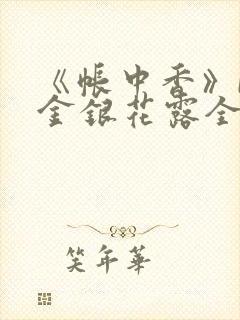 《帳中香》
金銀花露全
笑年華